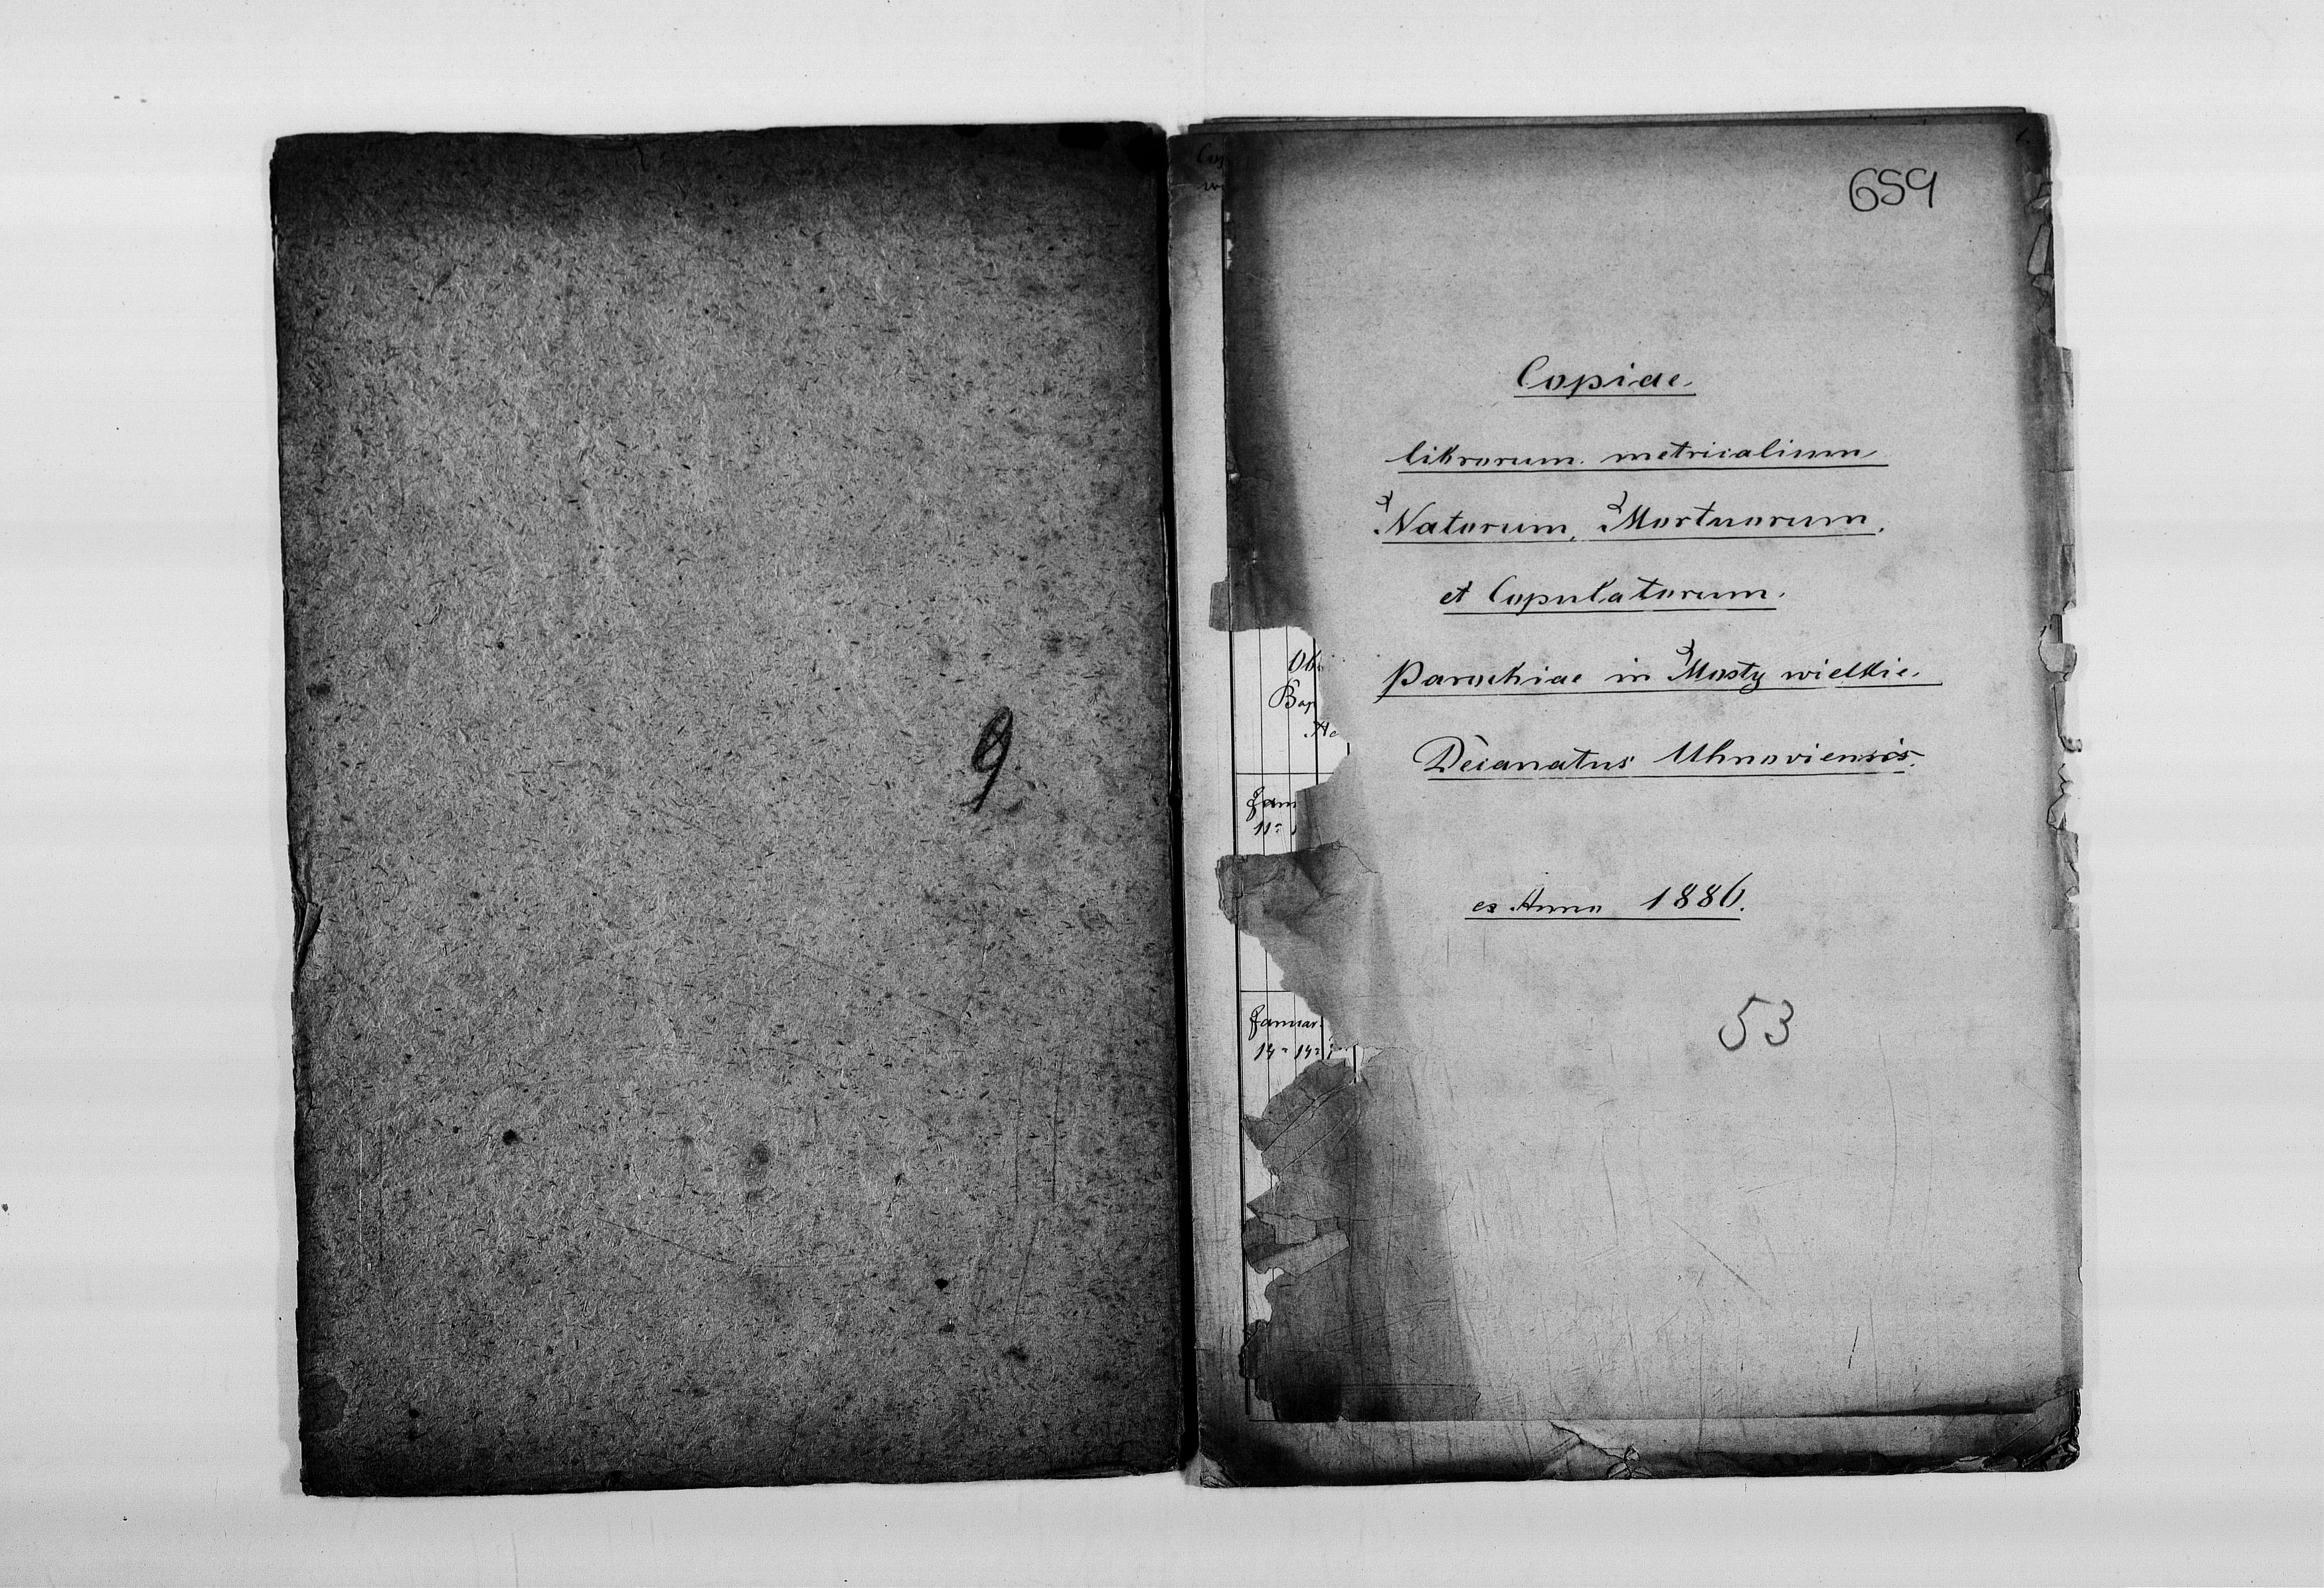 9
659
Copiae
librorum metricalium
Natorum, Mortuorum
et Copulatorum.
Parochiae in Mosty wielkie.
Decanatus Uhnoviensis.
ex Anno 1886.
53
Ob
Bap
Januar
14 14